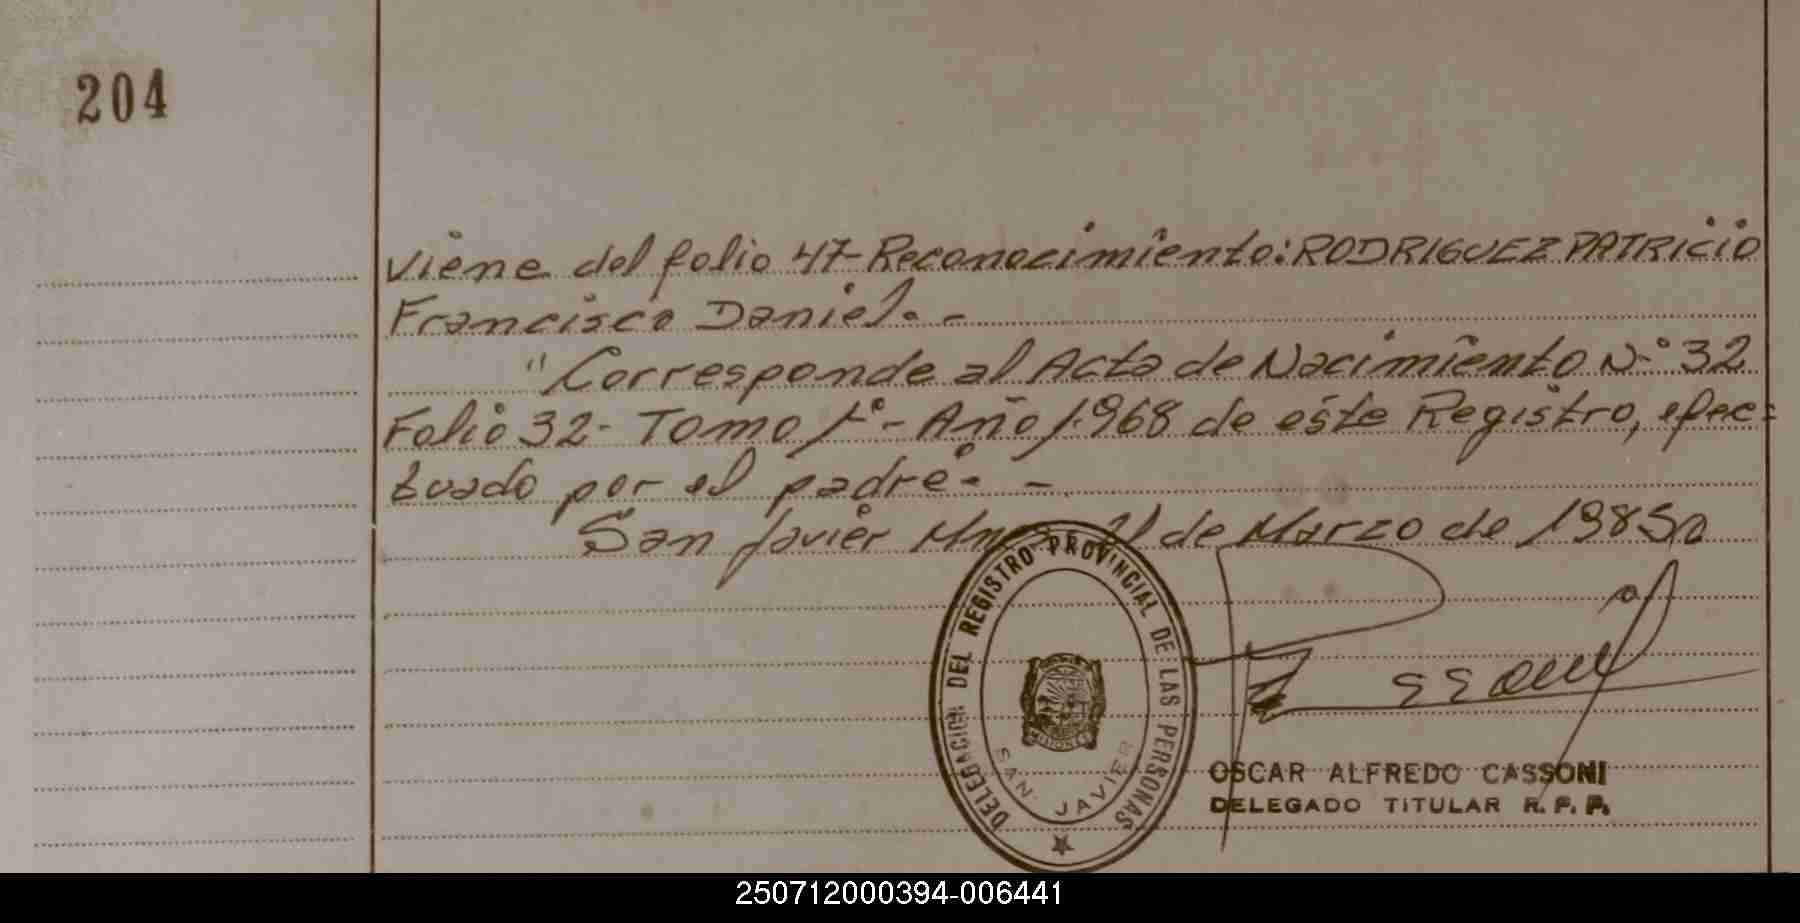 204
Viene del folio 47-Reconocimiento: RODRIGUEZ PATRICIO
Francisco Daniel.-
"Corresponde al Acta de Nacimiento N.° 32
Folio 32- Tomo 1°- Año 1.968 de este Registro, efec=
tuado por el padre.- -
San Javier Mnes. 21 de Marzo de 1985.
DELEGACION DEL REGISTRO PROVINCIAL DE LAS PERSONAS
MISIONES
SAN JAVIER
OSCAR ALFREDO CASSONI
DELEGADO TITULAR R. P. P.
250712000394-006441